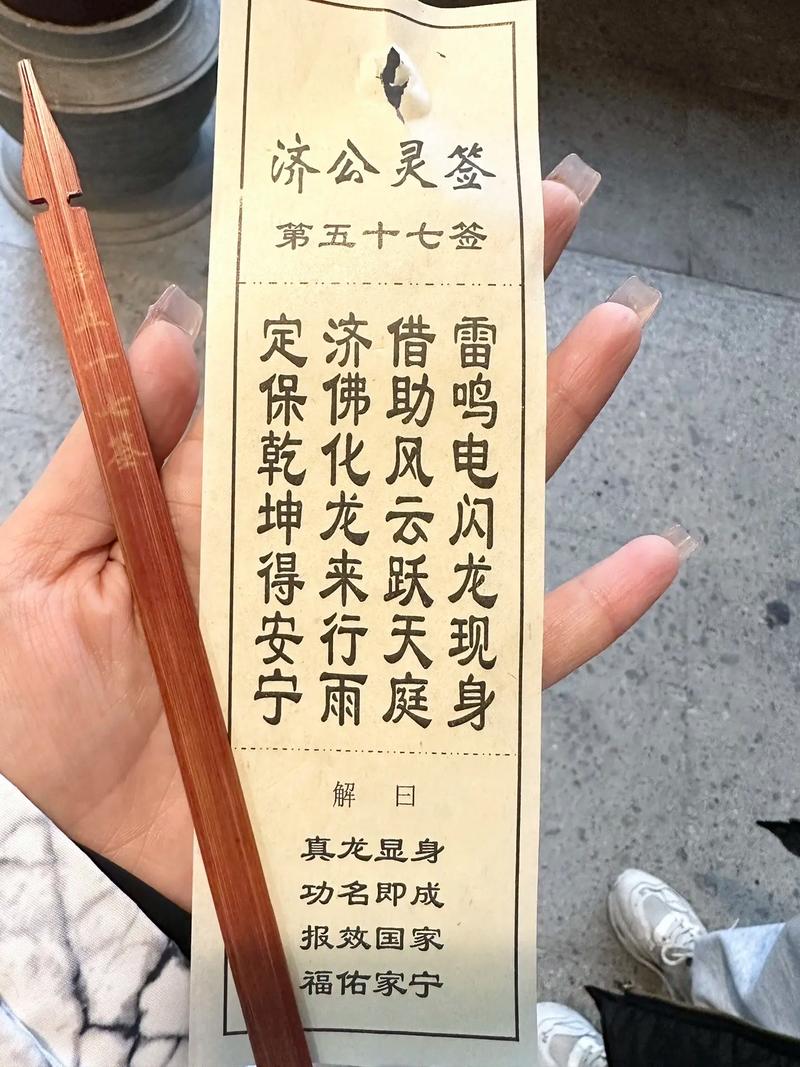 济公灵签
第五十七签
雷鸣电闪龙现身
借助风云跃天庭
济佛化龙来行雨
定保乾坤得安宁
解曰
真龙显身
功名即成
报效国家
福佑家宁